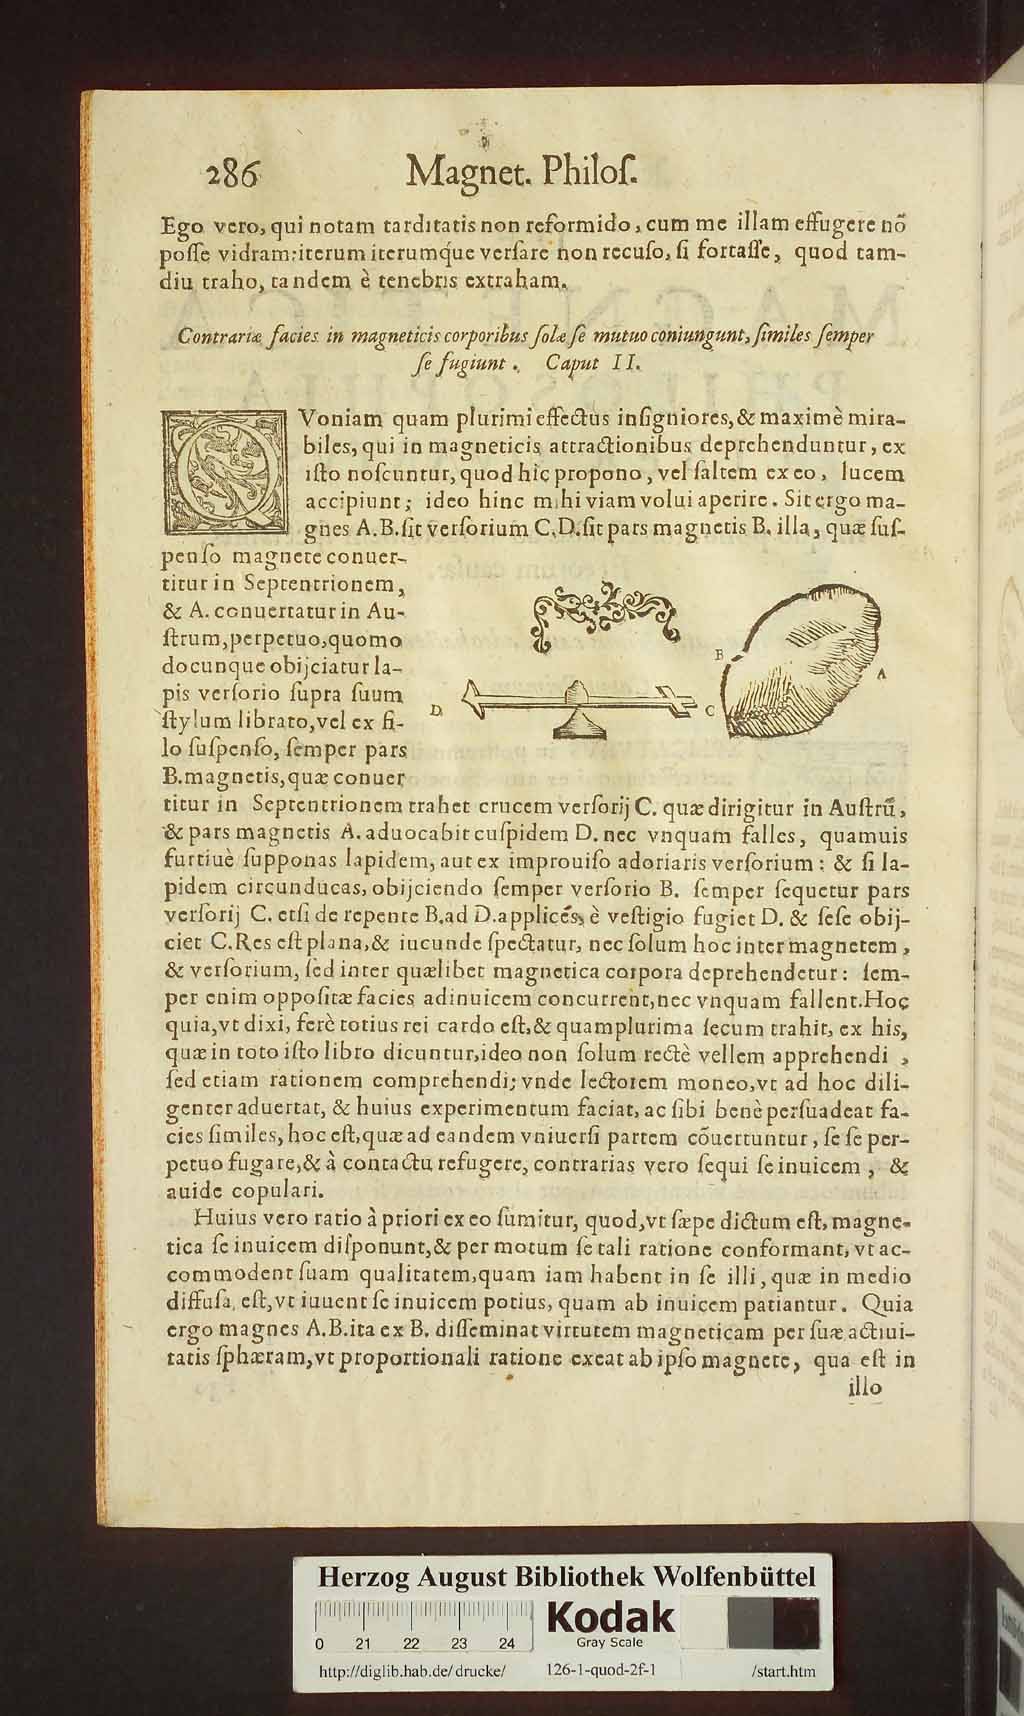 286 Magnet. Philoſ.
Ego vero, qui notam tarditatis non reformido, cum me illam effugere nõ
poſſe vidram: iterum iterumq́ue verſare non recuſo, ſi fortaſſe, quod tam-
diu traho, tandem è tenebris extraham.
Contrariæ facies in magneticis corporibus ſolæ ſe mutuo coniungunt, ſimiles ſemper
ſe fugiunt. Caput II.
QVoniam quam plurimi effectus inſigniores, & maximè mira-
biles, qui in magneticis attractionibus deprehenduntur, ex
iſto noſcuntur, quod hic propono, vel ſaltem ex eo, lucem
accipiunt; ideo hinc mihi viam volui aperire. Sit ergo ma-
gnes A.B. ſit verſorium C.D. ſit pars magnetis B. illa, quæ ſuſ-
penſo magnete conuer-
titur in Septentrionem,
& A. conuertatur in Au-
ſtrum, perpetuo, quomo
docunque obijciatur la-
pis verſorio ſupra ſuum
ſtylum librato, vel ex fi-
lo ſuſpenſo, ſemper pars
B. magnetis, quæ conuer
B
A
D.
C
titur in Septentrionem trahet crucem verſorij C. quæ dirigitur in Auſtrũ,
& pars magnetis A. aduocabit cuſpidem D. nec vnquam falles, quamuis
furtiuè ſupponas lapidem, aut ex improuiſo adoriaris verſorium: & ſi la-
pidem circunducas, obijciendo ſemper verſorio B. ſemper ſequetur pars
verſorij C. etſi de repente B. ad D. applices, è veſtigio fugiet D. & ſeſe obij-
ciet C. Res eſt plana, & iucunde ſpectatur, nec ſolum hoc inter magnetem,
& verſorium, ſed inter quælibet magnetica corpora deprehendetur: ſem-
per enim oppoſitæ facies adinuicem concurrent, nec vnquam fallent. Hoc
quia, vt dixi, ferè totius rei cardo eſt, & quamplurima ſecum trahit, ex his,
quæ in toto iſto libro dicuntur, ideo non ſolum rectè vellem apprehendi,
ſed etiam rationem comprehendi; vnde lectorem moneo, vt ad hoc dili-
genter aduertat, & huius experimentum faciat, ac ſibi benè perſuadeat fa-
cies ſimiles, hoc eſt, quæ ad eandem vniuerſi partem cõuertuntur, ſe ſe per-
petuo fugare, & à contactu refugere, contrarias vero ſequi ſe inuicem, &
auide copulari.
Huius vero ratio à priori ex eo ſumitur, quod, vt ſæpe dictum eſt, magne-
tica ſe inuicem diſponunt, & per motum ſe tali ratione conformant, vt ac-
commodent ſuam qualitatem, quam iam habent in ſe illi, quæ in medio
diffuſa eſt, vt iuuent ſe inuicem potius, quam ab inuicem patiantur. Quia
ergo magnes A.B. ita ex B. diſſeminat virtutem magneticam per ſuæ actiui-
tatis ſphæram, vt proportionali ratione exeat ab ipſo magnete, qua eſt in
illo
Herzog August Bibliothek Wolfenbüttel
0 21 22 23 24
Kodak
Gray Scale
http://diglib.hab.de/drucke/ 126-1-quod-2f-1 /start.htm